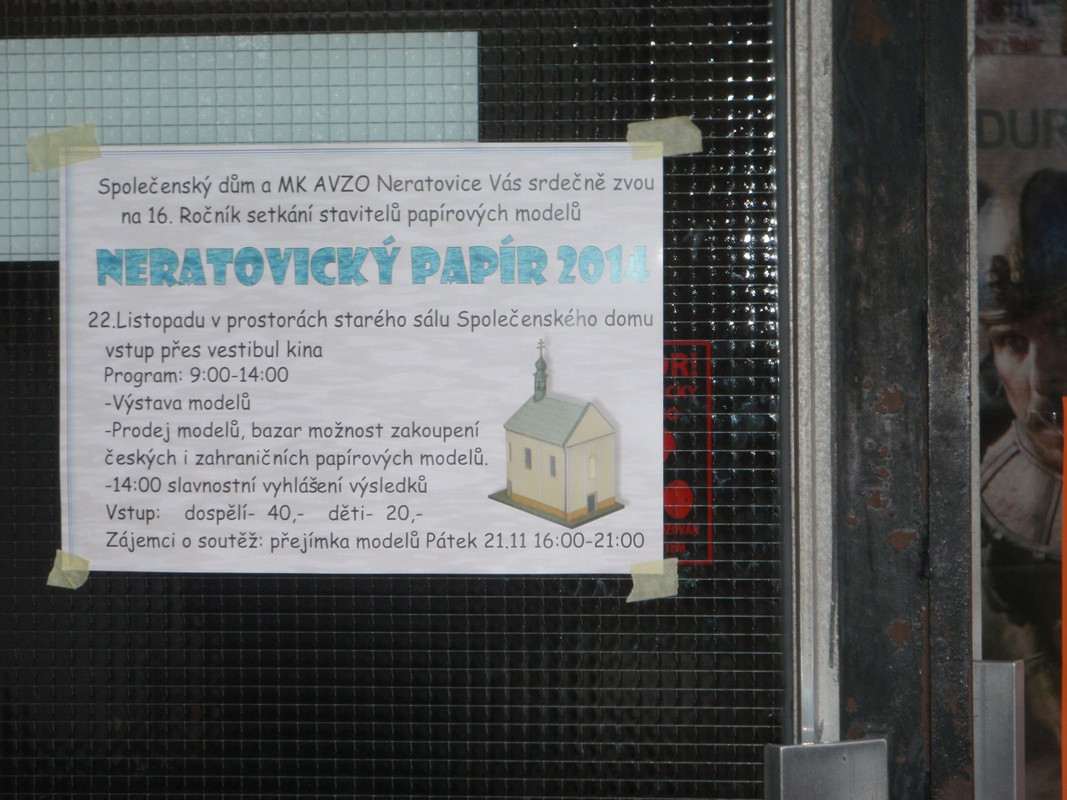 Společenský dům a MK AVZO Neratovice Vás srdečně zvou
na 16. Ročník setkání stavitelů papírových modelů
NERATOVICKÝ PAPÍR 2014
22.Listopadu v prostorách starého sálu Společenského domu
vstup přes vestibul kina
Program: 9:00-14:00
-Výstava modelů
-Prodej modelů, bazar možnost zakoupení
českých i zahraničních papírových modelů.
-14:00 slavnostní vyhlášení výsledků
Vstup: dospělí- 40,- děti- 20,-
Zájemci o soutěž: přejímka modelů Pátek 21.11 16:00-21:00
DUR